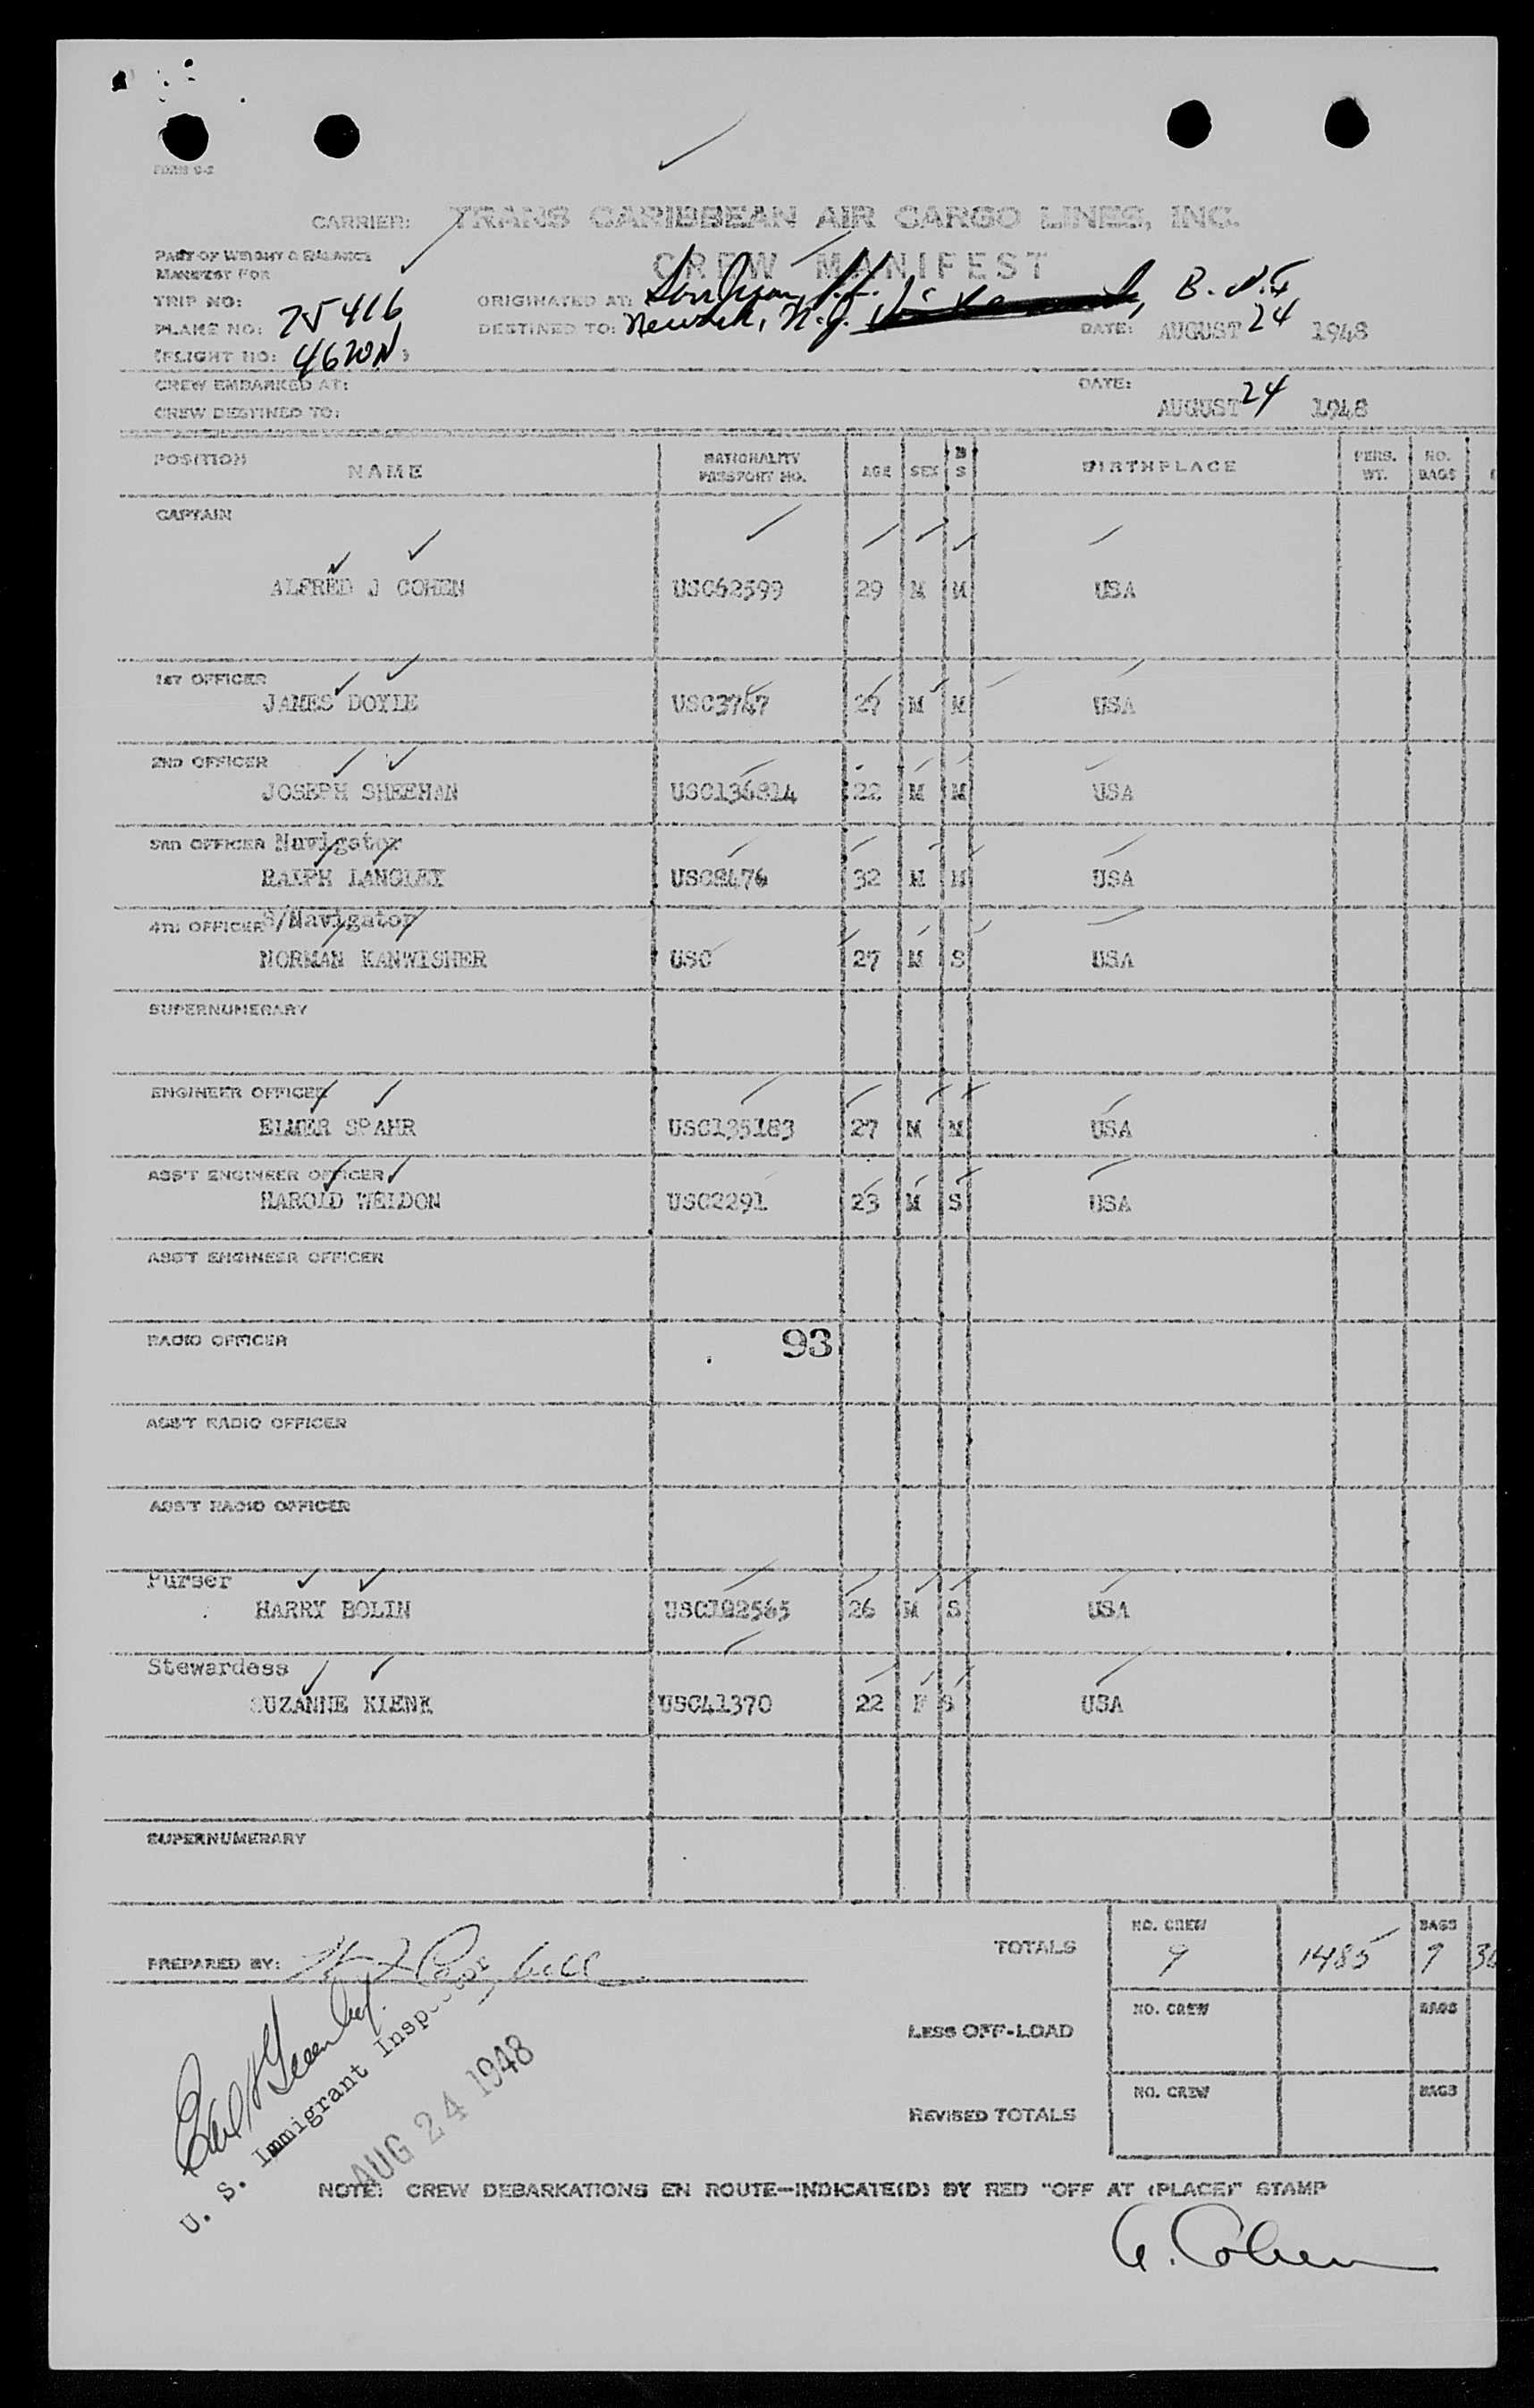 FORM C-2
CARRIER: TRANS CARIBBEAN AIR CARGO LINES, INC.
PART OF WEIGHT & BALANCE
MANIFEST FOR
CREW MANIFEST
TRIP NO: 75416
ORIGINATED AT: San Juan, P.R.
PLANE NO:
DESTINED TO: Newark, N.J. B.
DATE: AUGUST 24 1948
(FLIGHT NO: )
CREW EMBARKED AT:
DATE:
CREW DESTINED TO:
AUGUST 24 1948
POSITION NAME NATIONALITY PASSPORT NO. AGE SEX M S BIRTHPLACE PERS. WT. NO. BAGS
CAPTAIN
ALFRED J COHEN USC62599 29 M M USA
1ST OFFICER
JAMES DOYLE USC3747 27 M M USA
2ND OFFICER
JOSEPH SHEEHAN USC136814 22 M M USA
3RD OFFICER Navigator
RALPH LANGLEY USC2476 32 M M USA
4TH OFFICER S/Navigator
NORMAN KANWISHER USC 27 M S USA
SUPERNUMERARY
ENGINEER OFFICER
ELMER SPAHR USC135183 27 M M USA
ASS'T ENGINEER OFFICER
HAROLD WELDON USC2291 23 M S USA
ASS'T ENGINEER OFFICER
RADIO OFFICER 93
ASS'T RADIO OFFICER
ASS'T RADIO OFFICER
Purser
HARRY BOLIN USC102565 26 M S USA
Stewardess
SUZANNE KLENK USC41370 22 F S USA
SUPERNUMERARY
PREPARED BY:
TOTALS NO. CREW 9 1485 BAGS 9
LESS OFF-LOAD NO. CREW BAGS
REVISED TOTALS NO. CREW BAGS
U. S. Immigrant Inspector
AUG 24 1948
NOTE: CREW DEBARKATIONS EN ROUTE—INDICATE(D) BY RED "OFF AT (PLACE)" STAMP
A. Cohen